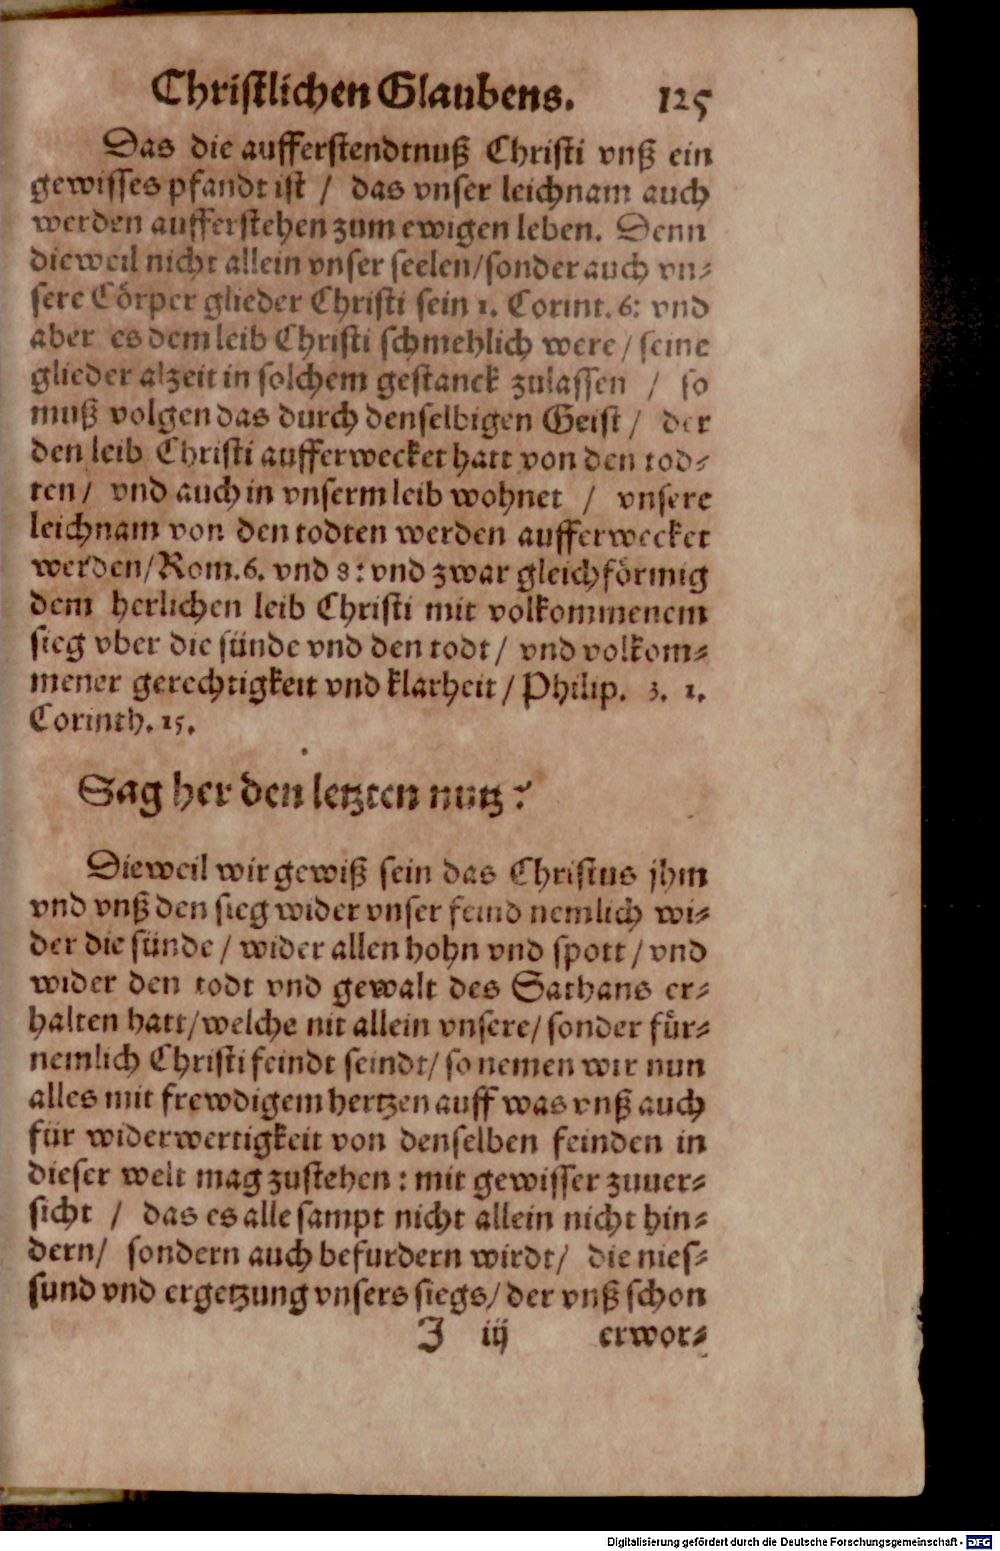 Christlichen Glaubens. 125
Das die aufferstendtnuß Christi vnß ein
gewisses pfandt ist / das vnser leichnam auch
werden aufferstehen zum ewigen leben. Denn
dieweil nicht allein vnser seelen/sonder auch vn⸗
sere Cörper glieder Christi sein 1. Corint. 6: vnd
aber es dem leib Christi schmehlich were / seine
glieder alzeit in solchem gestanck zulassen / so
muß volgen das durch denselbigen Geist / der
den leib Christi aufferwecket hatt von den tod⸗
ten / vnd auch in vnserm leib wohnet / vnsere
leichnam von den todten werden aufferwecket
werden/Rom.6. vnd 8: vnd zwar gleichförmig
dem herlichen leib Christi mit volkommenem
sieg vber die sünde vnd den todt / vnd volkom⸗
mener gerechtigkeit vnd klarheit / Philip. 3. 1.
Corinth. 15.
Sag her den letzten nutz?
Dieweil wir gewiß sein das Christus jhm
vnd vnß den sieg wider vnser feind nemlich wi⸗
der die sünde / wider allen hohn vnd spott / vnd
wider den todt vnd gewalt des Sathans er⸗
halten hatt/welche nit allein vnsere/ sonder für⸗
nemlich Christi feindt seindt/ so nemen wir nun
alles mit frewdigem hertzen auff was vnß auch
für widerwertigkeit von denselben feinden in
dieser welt mag zustehen : mit gewisser zuuer⸗
sicht / das es alle sampt nicht allein nicht hin⸗
dern/ sondern auch befurdern wirdt/ die nies⸗
sund vnd ergetzung vnsers siegs/ der vnß schon
J iij erwor⸗
Digitalisierung gefördert durch die Deutsche Forschungsgemeinschaft - DFG